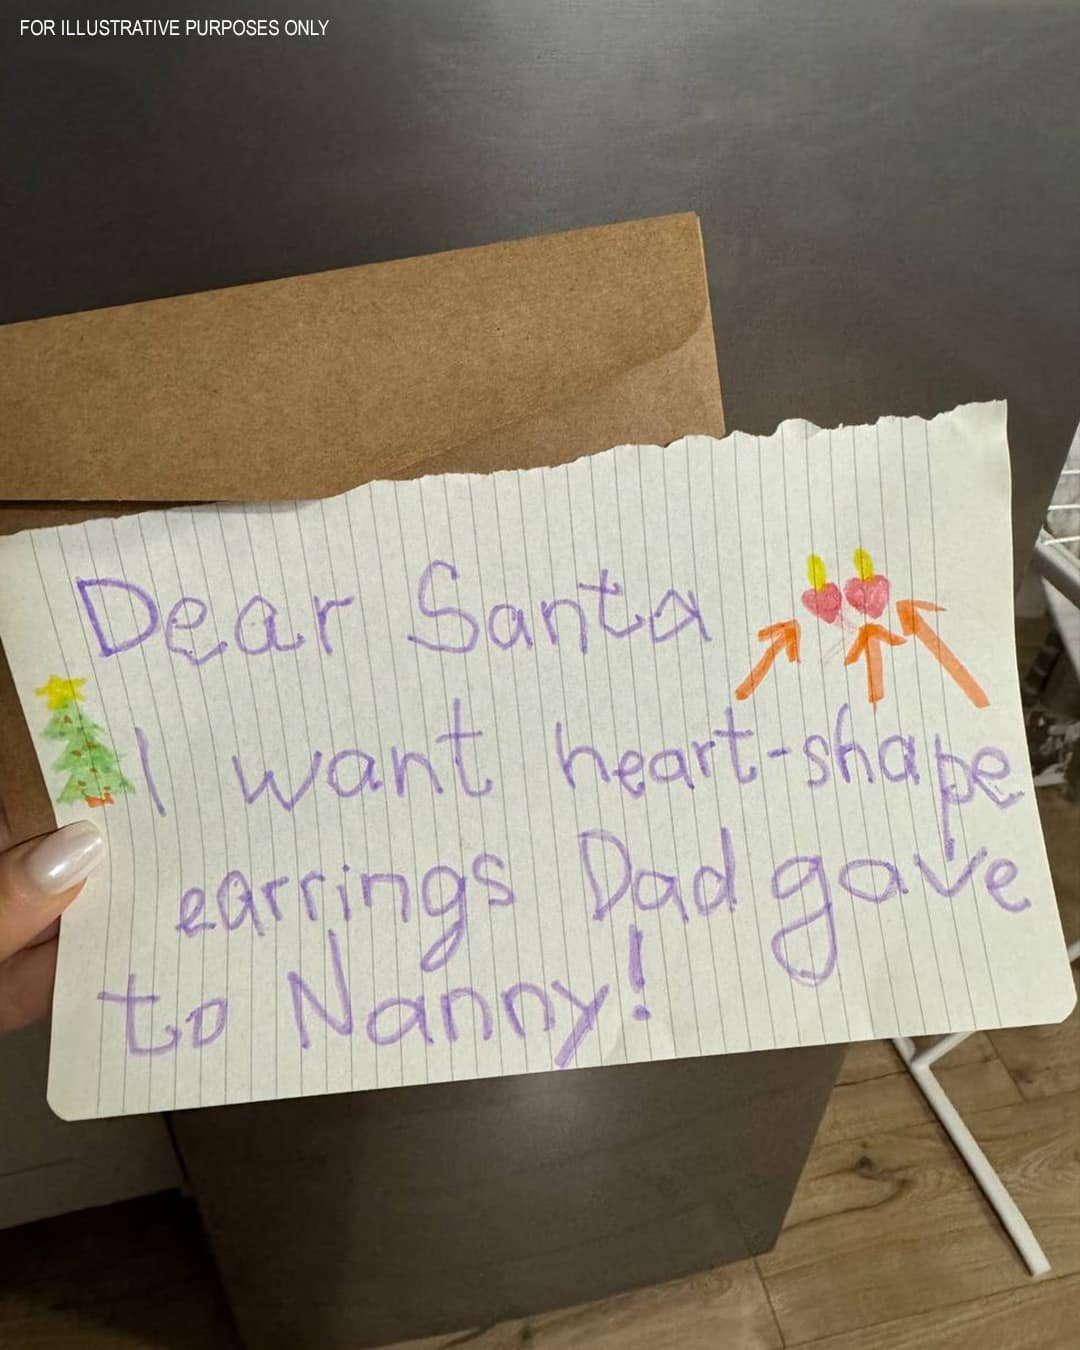 FOR ILLUSTRATIVE PURPOSES ONLY
Dear Santa
I want heart-shape
earrings Dad gave
to Nanny!